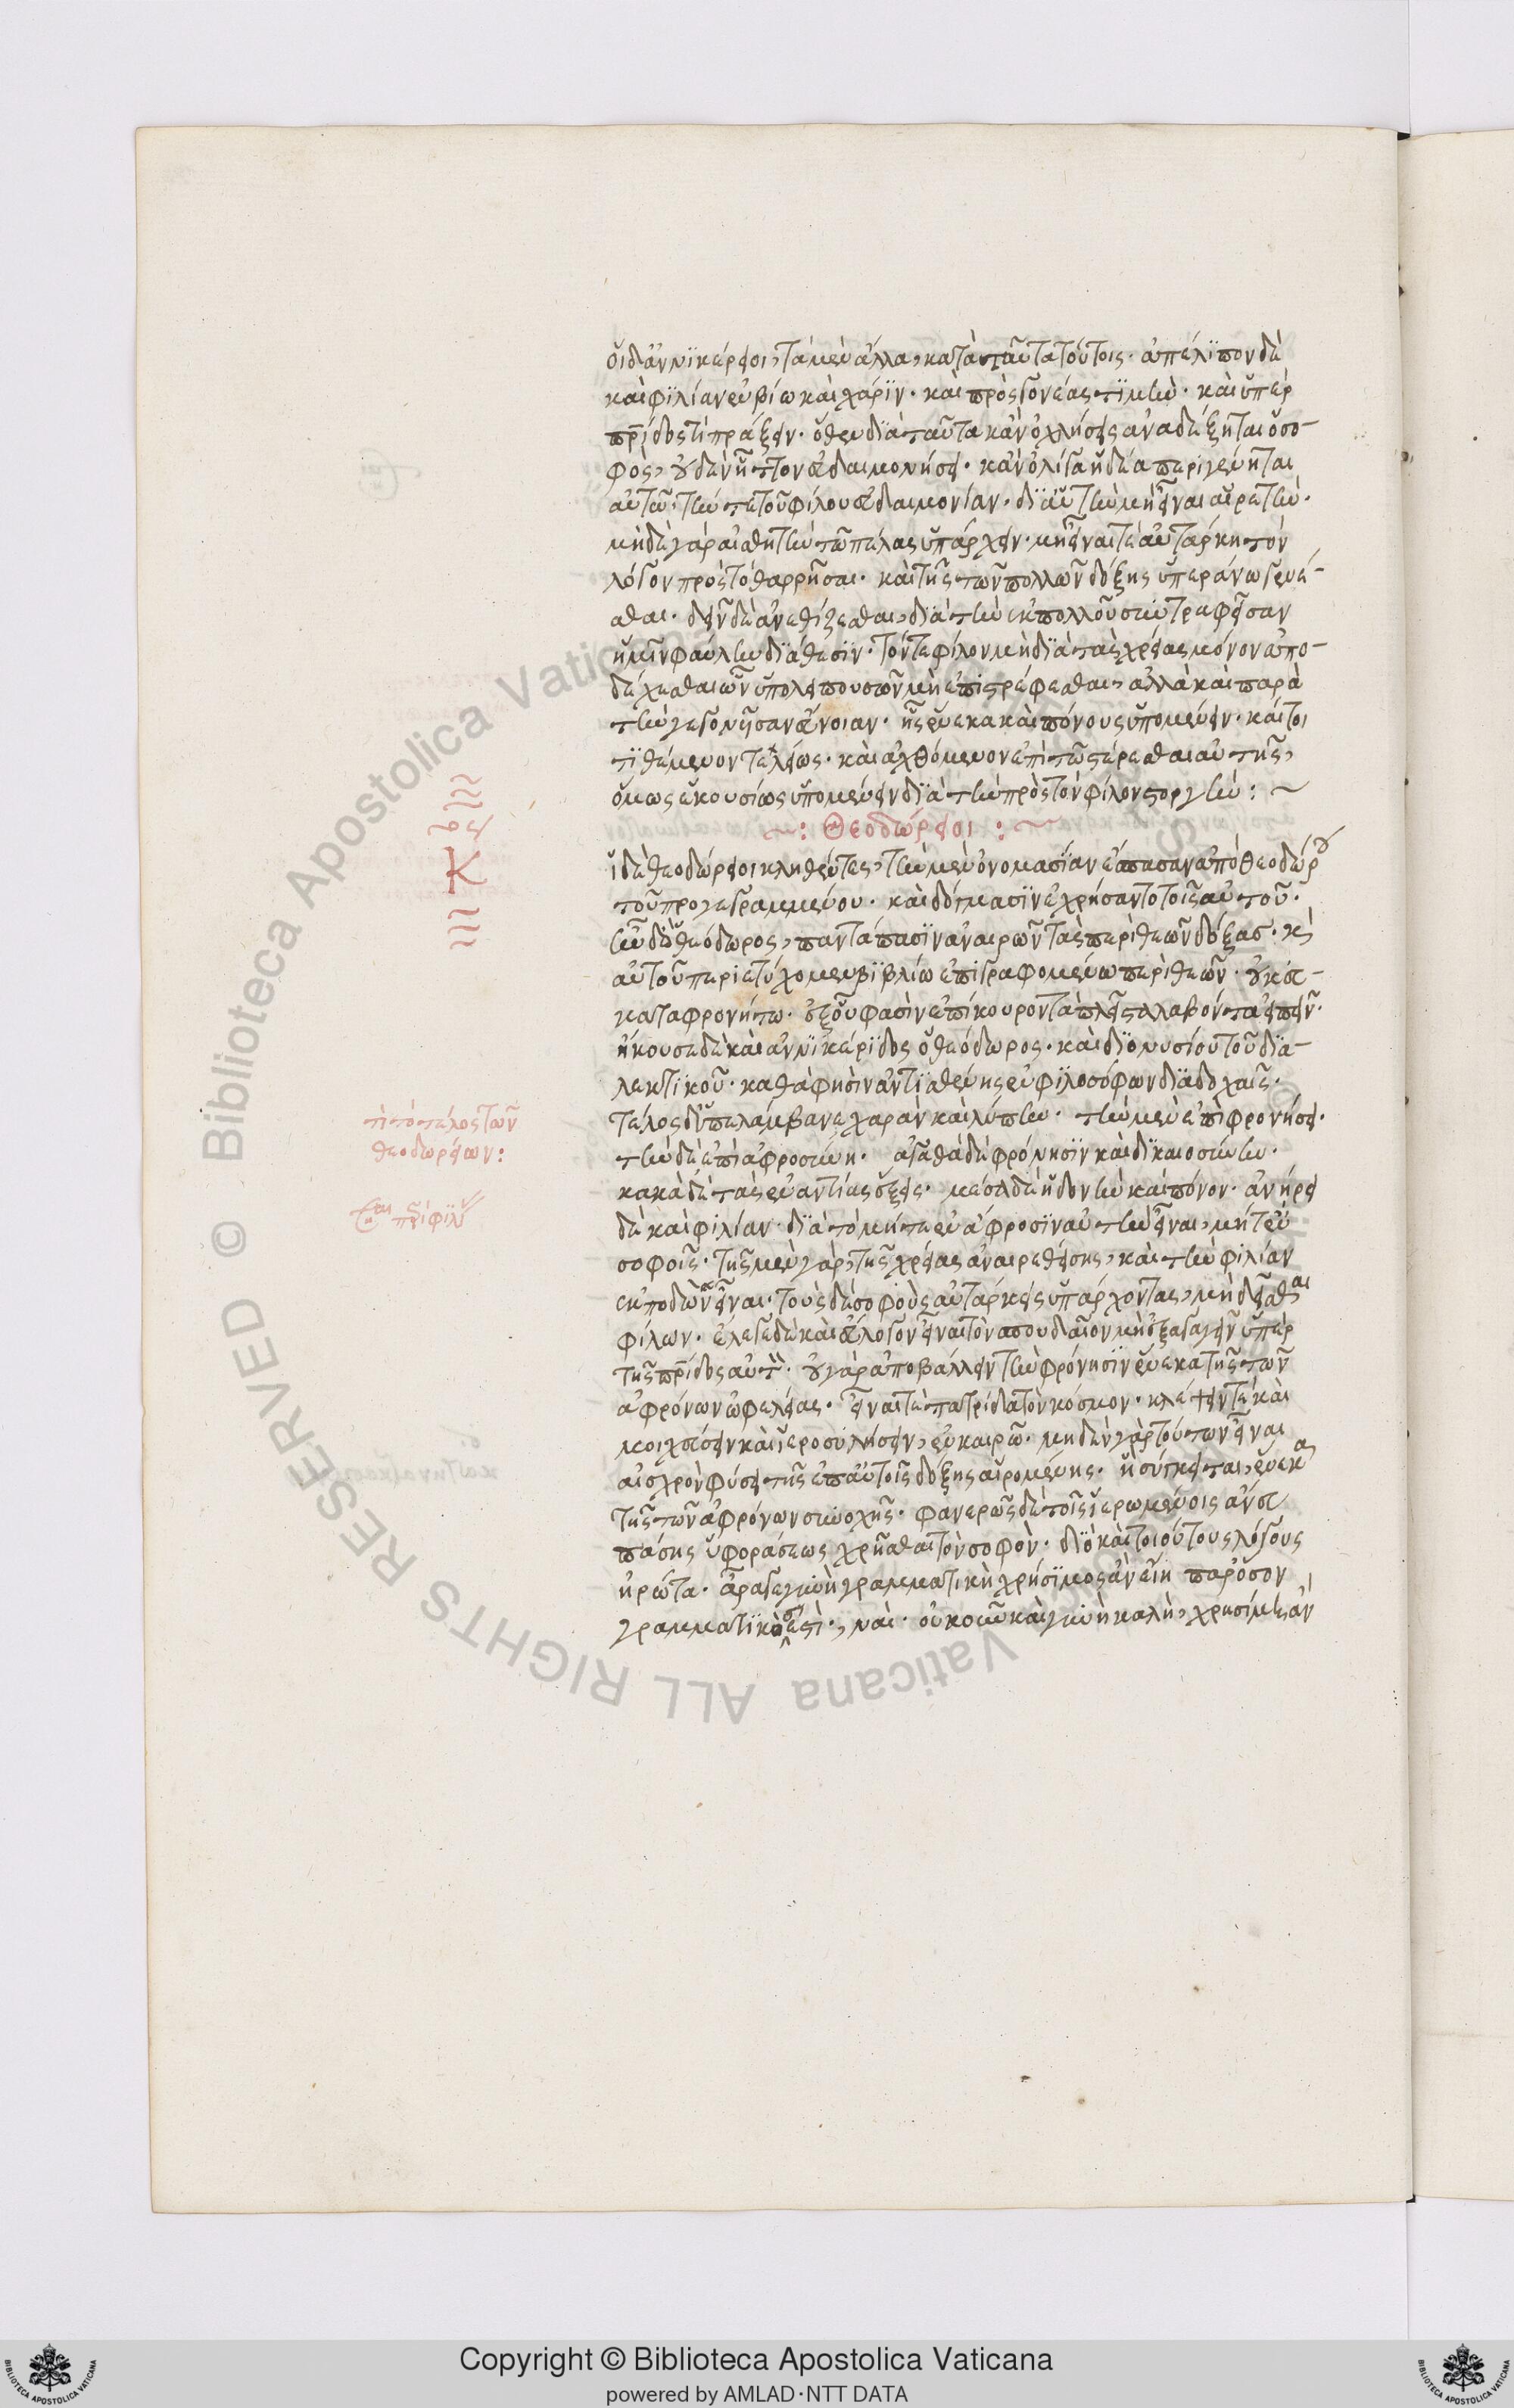 οἱ δ' ἀννικέρειοι, τὰ μὲν ἄλλα, κατὰ ταῦτα τούτοις. ἀπέλιπον δὲ
καὶ φιλίαν ἐν βίω καὶ χάριν. καὶ πρὸς γονέας τιμὴν. καὶ ὑπὲρ
πρίδος τὶ πράξειν. ὅθεν διὰ ταῦτα κἂν ὀχλήσεις ἀναδέξηται ὁ σο-
φὸς, οὐδὲν ἧττον εὐδαιμονήσει. κἂν ὀλίγα ἡδέα περιγένηται
αὐτῶ. τήν τε τοῦ φίλου εὐδαιμονίαν. δι' αὑτὴν μὴ εἶναι αἱρετὴν.
μὴ δὲ γὰρ αἰσθητὴν τῶ πέλας ὑπάρχειν. μὴ εἶναί τε αὐτάρκη τὸν
λόγον πρὸς τὸ θαρρῆσαι. καὶ τῆς τῶν πολλῶν δόξης ὑπεράνω γενέ-
σθαι. δεῖν δὲ ἀνεθίζεσθαι, διὰ τὴν ἐκ πολλοῦ συντραφεῖσαν
ἡμῖν φαύλην διάθεσιν. τόν τε φίλον μὴ διὰ τὰς χρείας μόνον ἀπο-
δέχεσθαι ὧν ὑπολειπουσῶν μὴ ἐπιστρέφεσθαι, ἀλλὰ καὶ παρὰ
τὴν γεγονυῖαν εὔνοιαν. ἧς ἕνεκα καὶ πόνους ὑπομένειν. καίτοι
τιθέμενον τέλειως. καὶ ἀχθόμενον ἐπὶ τῶ στέρεσθαι αὐτῆς,
ὅμως ἑκουσίως ὑπομένειν διὰ τὴν πρὸς τὸν φίλον στοργὴν : ~
~ : Θεοδώρειοι : ~
ἱ δὲ θεοδώρειοι κληθέντες, τὴν μὲν ὀνομασίαν ἔσπασαν ἀπὸ θεοδώρου
τοῦ προγεγραμμένου. καὶ δόγμασιν ἐχρήσαντο τοῖς αὐτοῦ.
ἦν δ' ὁ θεόδωρος, παντάπασιν ἀναιρῶν τὰς περὶ θεῶν δόξας. κὶ
αὐτοῦ περιετύχομεν βιβλίω ἐπιγραφομένω περὶ θεῶν. οὐκ εὐ-
καταφρονήτω. ἐξ οὗ φασὶν ἐπίκουρον τὰ πλεῖστα λαβόντα εἰπεῖν.
ἤκουσε δὲ καὶ ἀννικέριδος ὁ θεόδωρος. καὶ διονυσίου τοῦ δια-
λεκτικοῦ. καθά φησιν ἀντισθένης ἐν φιλοσόφων διαδοχαῖς.
τέλος δ' ὑπελάμβανε χαρὰν καὶ λύπην. τὴν μὲν ἐπὶ φρονήσει.
τὴν δὲ ἐπὶ ἀφροσύνη. ἀγαθὰ δὲ φρόνησιν καὶ δικαιοσύνην.
κακὰ δὲ τὰς ἐναντίας ἕξεις. μέσα δὲ ἡδονὴν καὶ πόνον. ἀνήρει
δὲ καὶ φιλίαν. διὰ τὸ μήτε ἐν ἄφροσιν αὐτὴν εἶναι, μήτ' ἐν
σοφοῖς. τῆς μὲν γὰρ, τῆς χρείας ἀναιρεθείσης, καὶ τὴν φιλίαν
ἐκποδὼν εἶναι. τοὺς δὲ σοφοὺς αὐτάρκεις ὑπάρχοντας, μὴ δεῖσθαι
φίλων. ἔλεγε δὲ καὶ εὔλογον εἶναι τὸν σπουδαῖον μὴ ἐξαγαγεῖν ὑπὲρ
τῆς πρίδος αὑτ. οὐ γὰρ ἀποβάλλειν τὴν φρόνησιν ἕνεκα τῆς τῶν
ἀφρόνων ὠφελείας. εἶναί τε πατρίδα τὸν κόσμον. κλέψειν τέ καὶ
μοιχεύσειν καὶ ἱεροσυλήσειν, ἐν καιρῶ. μηδὲν γὰρ τούτων εἶναι
αἰσχρὸν φύσει τῆς ἐπ' αὐτοῖς δόξης αἰρομένης. ἣ σύγκειται, ἕνεκα
τῆς τῶν ἀφρόνων συνοχῆς. φανερῶς δὲ τοῖς ἐρωμένοις ἄνευ
πάσης ὑφοράσεως χρῆσθαι τὸν σοφὸν. διὸ καὶ τοιούτους λόγους
ἠρώτα. ἆρά γε γυνὴ γραμματικὴ χρήσιμος ἂν εἴη παρ' ὅσον
γραμματικὸς ἐστὶ., ναί. οὐκοῦν καὶ γυνὴ καλὴ, χρησίμη ἂν
τί τὸ τέλος τῶν
θεοδωρείων :